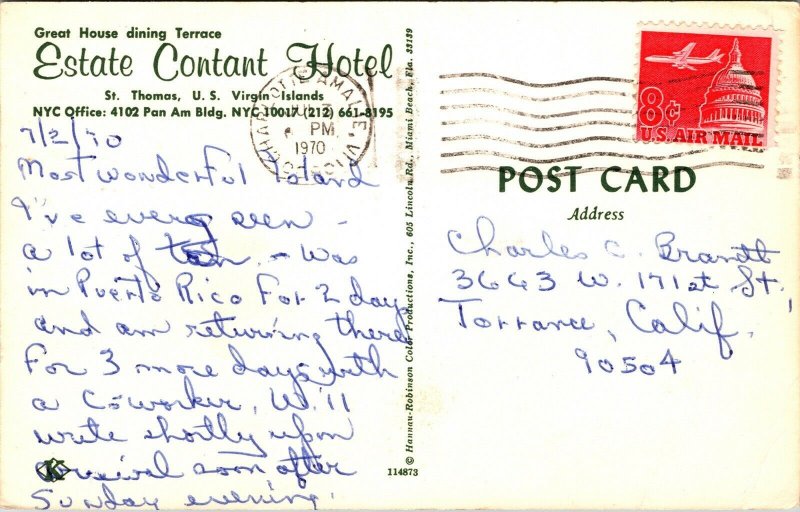 Great House dining Terrace
Estate Contant Hotel
St. Thomas, U. S. Virgin Islands
NYC Office: 4102 Pan Am Bldg. NYC 10017 (212) 661-8195
7/2/70
Most wonderful Island
I've ever seen -
a lot of - Was
in Puerto Rico For 2 days
and am returning there
For 3 more days with
a Co-worker, W'ill
write shortly upon
arrival soon after
Sunday evening.
K
114873
© Hannau-Robinson Color Productions, Inc., 605 Lincoln Rd., Miami Beach, Fla. 33139
CHARLOTTE AMALIE
PM
1970
8¢
U.S. AIR MAIL
POST CARD
Address
Charles C. Brandt
3663 W. 171st St.
Torrance, Calif.
90504